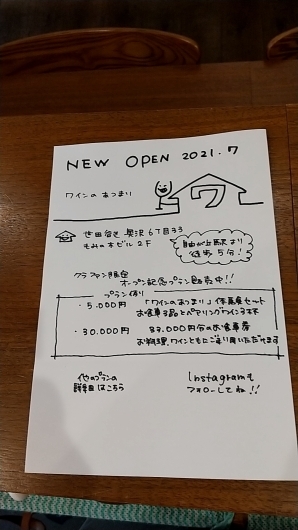 NEW OPEN 2021.7
ワインのあつまり
ワ
世田谷区 奥沢6丁目33
もみの木ビル 2F
自由が丘駅より
徒歩5分!
クラファン限定
オープン記念プラン販売中!!
プラン例)
・5,000円 「ワインのあつまり」体験セット
お食事3品とペアリングワイン3杯
・30,000円 33,000円分のお食事券
お料理、ワインともにご利用いただけます
他のプランの
詳細はこちら
Instagramも
フォローしてね!!